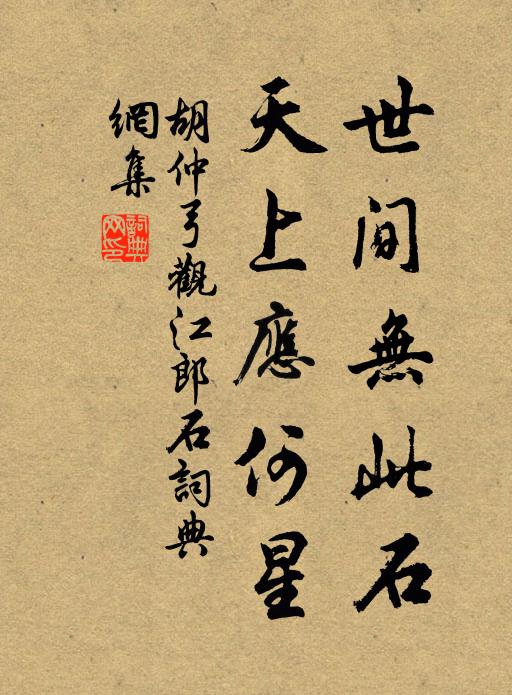 世間無此石
天上應何星
胡仲弓觀江郎石詞典
網集
詞典网印